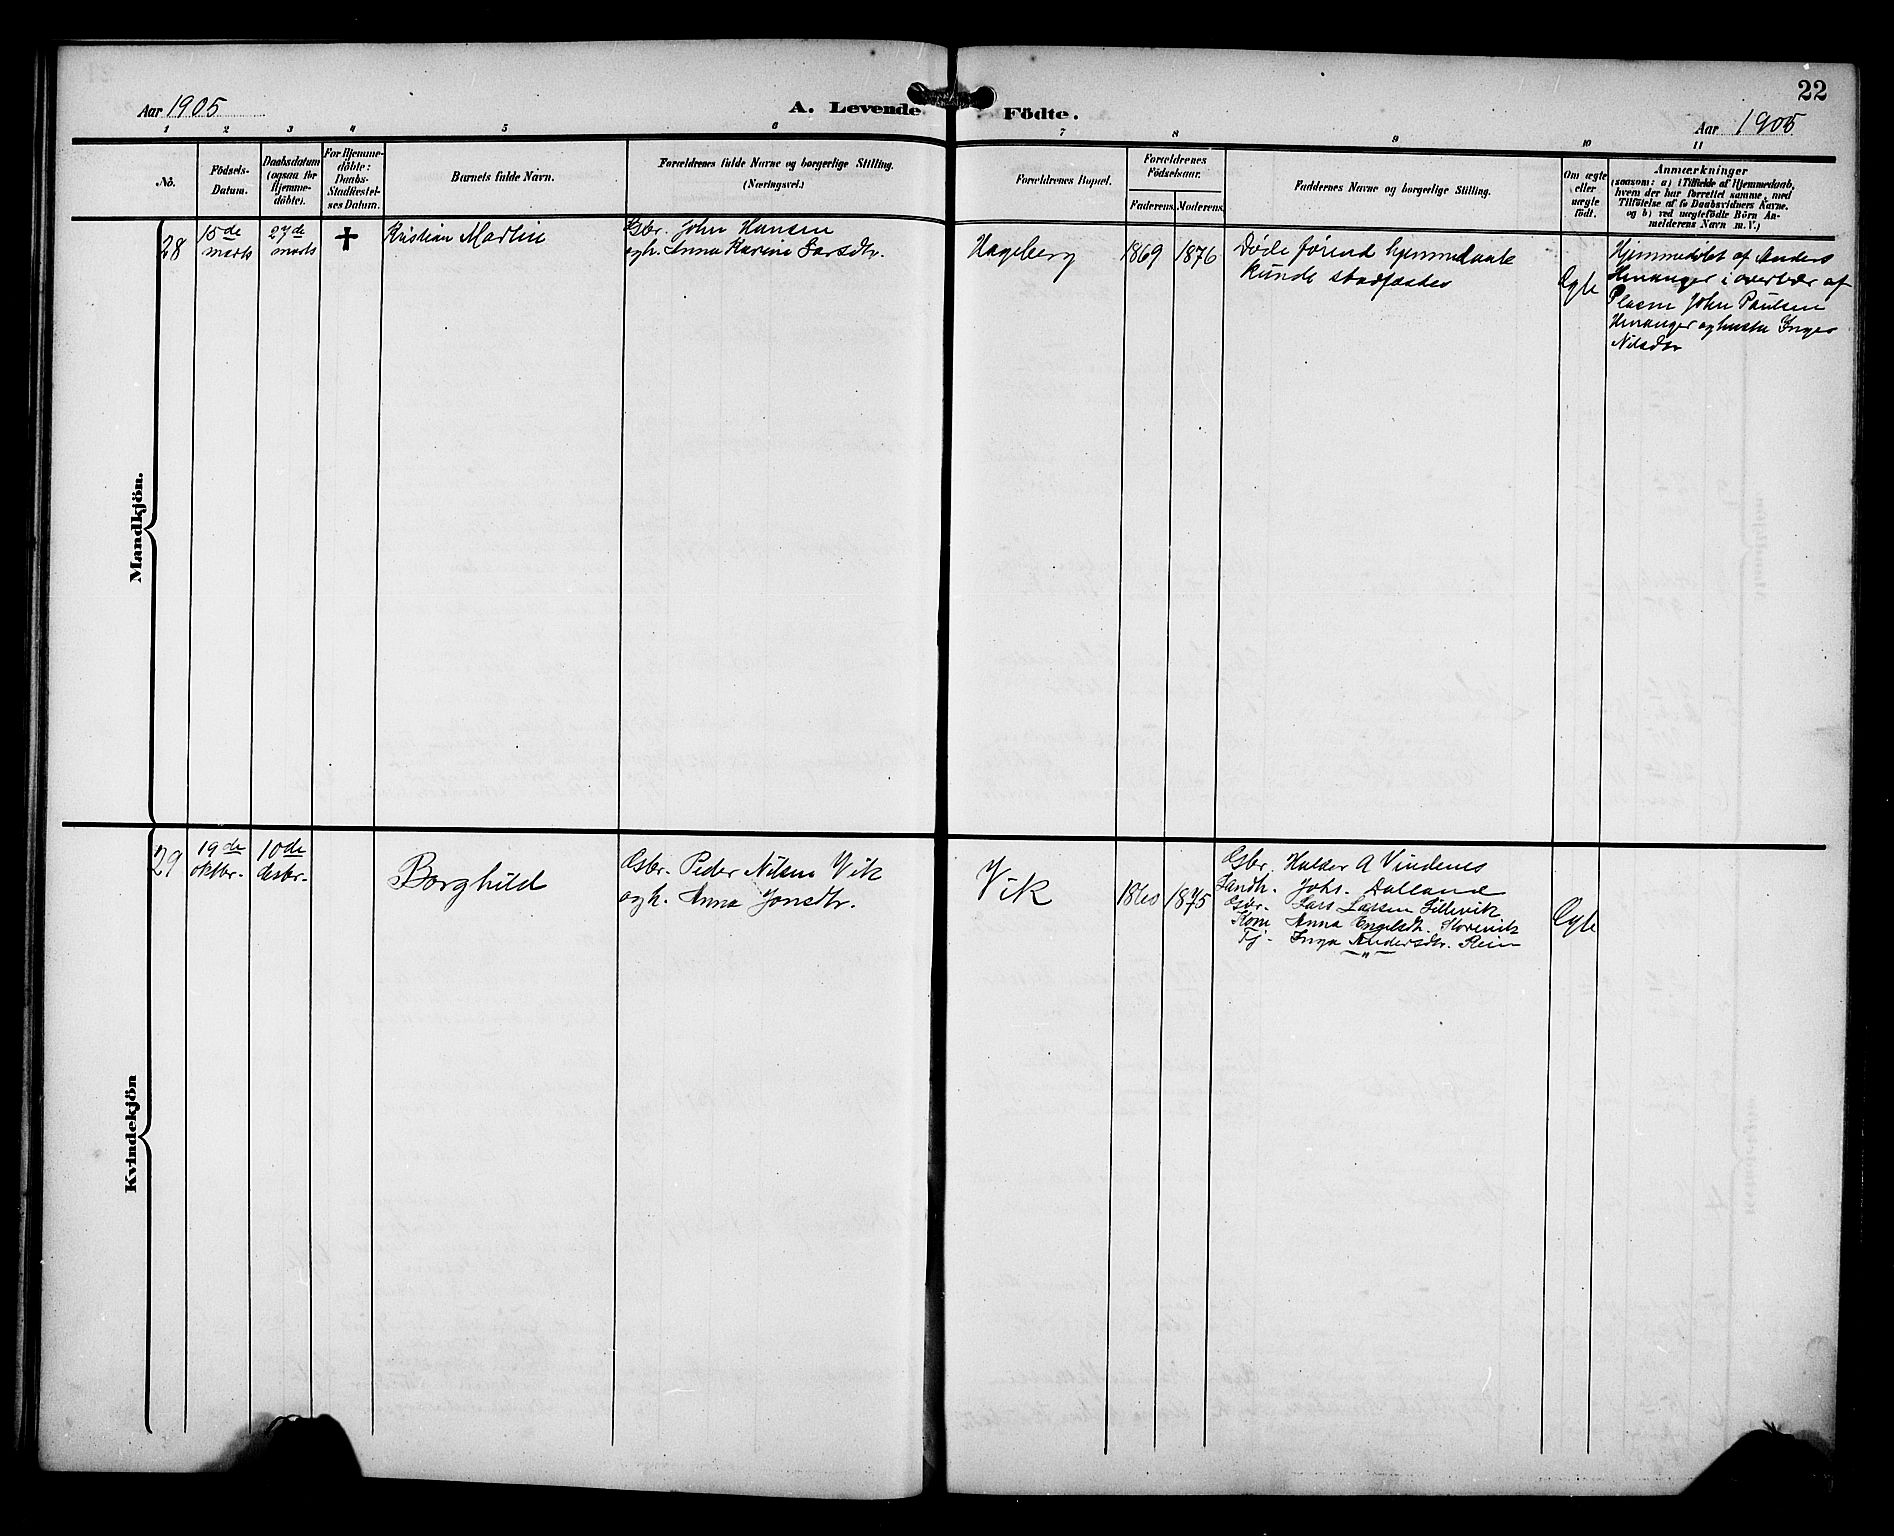 22
Aar 1905
A. Levende Födte.
Aar 1905
1 2 3 4 5 6 7 8 9 10 11
No.
Födsels-
Datum.
Daabsdatum
(ogsaa for
Hjemme-
döbte).
For Hjemme-
döbte:
Daabs-
Stadfæstel-
ses Datum.
Barnets fulde Navn.
Forældrenes fulde Navne og borgerlige Stilling.
(Næringsvei.)
Forældrenes Bopæl.
Forældrenes
Födselsaar.
Faderens. Moderens.
Faddernes Navne og borgerlige Stilling.
Om ægte
eller
uægte
födt.
Anmærkninger
(saasom: a) i Tilfælde af Hjemmedaab,
hvem der har forrettet samme, med
Tilföielse af to Daabsvidners Navne,
og b) ved uægtefödte Börn An-
melderens Navn m. V.)
Mandkjön.
28
15de
marts
27de
marts
Kristian Martin
Gbr. John Hansen
og h. Anna Karine Larsdtr.
Hageberg
1869
1876
Døde førend hjemmedaab
kunde stadfæstes
Egte
Hjemmedøbt af Anders
Henanger i overvær af
Pladsm John Paulsen
Henanger og hustru Inger
Nilsdtr
Kvindekjön
29
19de
oktbr.
10de
desbr.
Borghild
Gsbr. Peder Nilsen Vik
og h. Anna Jonsdtr.
Vik
1860
1875
Gsbr. Haldor A Vindenes
Landh. Johs. Dalland
Gsbr. Lars Larsen Lillevik
Kone Anna Engelsdtr. Storevik
Tj. Inga Andersdtr. Rein
Egte